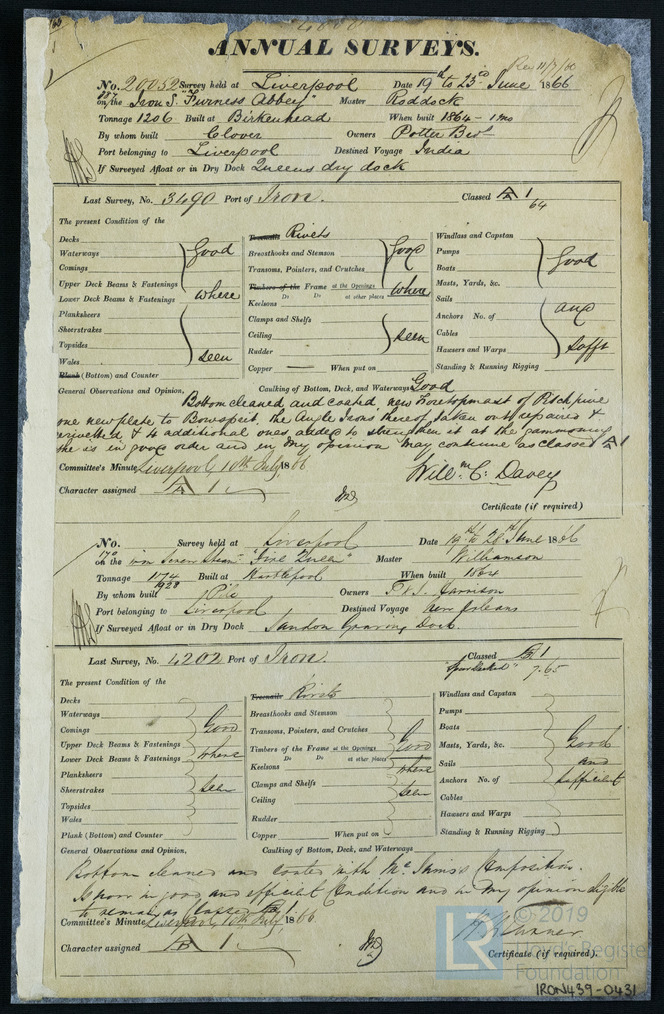 ANNUAL SURVEYS.
Rec 11/7/66
No. 20052 Survey held at Liverpool Date 19th to 23rd June 1866
on the Iron S. "Furness Abbey" Master Roddock
Tonnage 1206 Built at Birkenhead When built 1864 - 1 mo
By whom built Clover Owners Potter Bros
Port belonging to Liverpool Destined Voyage India
If Surveyed Afloat or in Dry Dock Queens dry dock
Last Survey, No. 3490 Port of Iron. Classed A 1
64
The present Condition of the
Decks
Waterways
Comings
Upper Deck Beams & Fastenings
Lower Deck Beams & Fastenings
Planksheers
Sheerstrakes
Topsides
Wales
Plank (Bottom) and Counter
Good
where
seen
Treenails Rivets
Breasthooks and Stemson
Transoms, Pointers, and Crutches
Timbers of the Frame at the Openings
Do Do at other places
Keelsons
Clamps and Shelfs
Ceiling
Rudder
Copper — When put on
Good
where
seen
Windlass and Capstan
Pumps
Boats
Masts, Yards, &c.
Sails
Anchors No. of
Cables
Hawsers and Warps
Standing & Running Rigging
Good
and
sufft
General Observations and Opinion, Caulking of Bottom, Deck, and Waterways Good
Bottom cleaned and coated new Foretopmast of Pitch pine
one new plate to Bowsprit. the Angle Irons thereof taken out, repaired &
rivetted & 4 additional ones added to strengthen it at the gammoning
she is in good order and in my opinion may continue as classed A 1
Committee's Minute Liverpool, 10th July 1866
Character assigned A 1
Willm. C. Davey
Certificate (if required)
No. Survey held at Liverpool Date 19th to 20th June 1866
170
on the iron Screw Steamr "Fire Queen" Master Williamson
Tonnage 1174 Built at Hartlepool When built 1864
1928
By whom built Pile Owners F & J. Harrison
Port belonging to Liverpool Destined Voyage New Orleans
If Surveyed Afloat or in Dry Dock Sandon Graving Dock.
Last Survey, No. 4202 Port of Iron. Classed 1
"Spar Decked" 7.65
The present Condition of the
Decks
Waterways
Comings
Upper Deck Beams & Fastenings
Lower Deck Beams & Fastenings
Planksheers
Sheerstrakes
Topsides
Wales
Plank (Bottom) and Counter
Good
where
seen
Treenails Rivets
Breasthooks and Stemson
Transoms, Pointers, and Crutches
Timbers of the Frame at the Openings
Do Do at other places
Keelsons
Clamps and Shelfs
Ceiling
Rudder
Copper When put on
Good
where
seen
Windlass and Capstan
Pumps
Boats
Masts, Yards, &c.
Sails
Anchors No. of
Cables
Hawsers and Warps
Standing & Running Rigging
Good
and
sufficient
General Observations and Opinion, Caulking of Bottom, Deck, and Waterways
Bottom cleaned and coated with Mc Innis's Composition.
Is now in good and efficient Condition and in my opinion eligible
to remain as Classed 1
Committee's Minute Liverpool, 10th July 1866.
Character assigned 1
Certificate (if required).
LR
© 2019
Lloyd's Register
Foundation
IRON439-0431